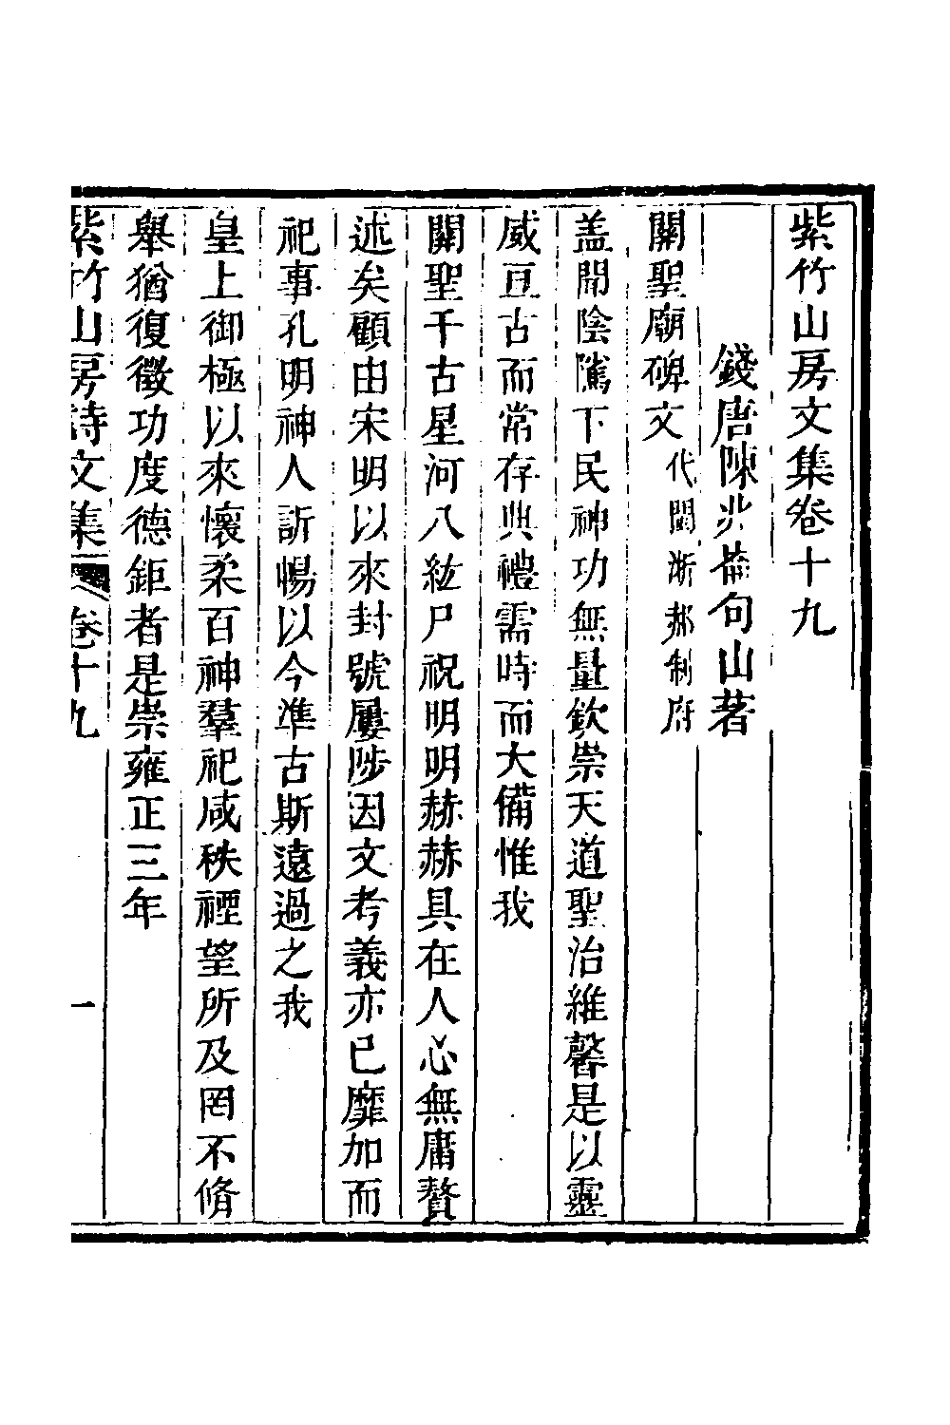 紫竹山房文集卷十九
錢唐陳兆崙句山著
關聖廟碑文代閩浙郝制府
盖聞陰隲下民神功無量欽崇天道聖治維馨是以靈
威亘古而常存典禮需時而大備惟我
關聖千古星河八紘尸祝明明赫赫具在人心無庸贅
述矣顧由宋明以來封號屢陟因文考義亦已靡加而
祀事孔明神人訢暢以今準古斯遠過之我
皇上御極以來懷柔百神羣祀咸秩禋望所及罔不脩
舉猶復徵功度德鉅者是崇雍正三年
紫竹山房詩文集 卷十九 一